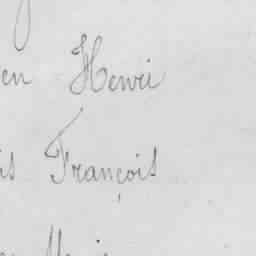 en Henri
is François